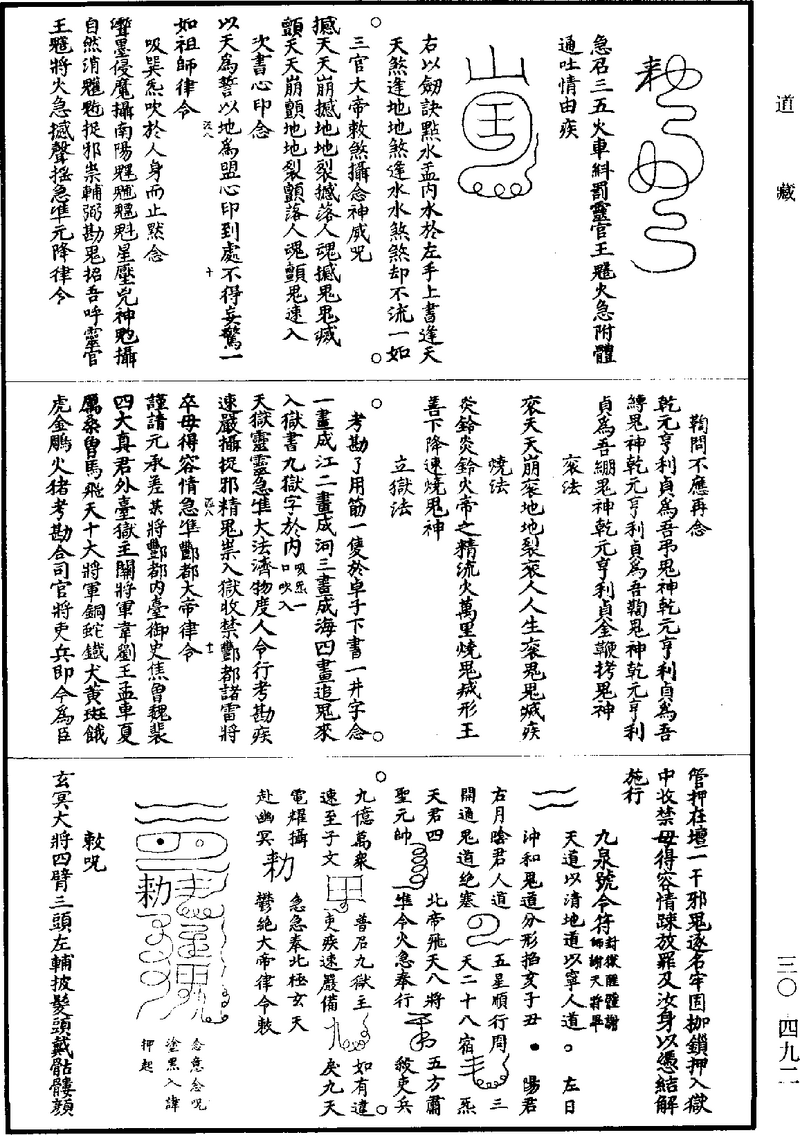 道藏
勑
急召三五火車糾罰靈官王魋火急附體
通吐情由疾
右以劒訣點水盂内水於左手上書逢天
天煞逢地地煞逢水水煞煞却不流一如
三官大帝敕煞攝念神威呪
撼天天崩撼地地裂撼落人魂撼鬼鬼滅
顫天天崩顫地地裂顫落人魂顫鬼速入
次書心印念
以天為誓以地為盟心印到處不得妄驚一
如祖師律令
吸巽炁吹於人身而止黙念
自然消
捉邪祟輔弼勘鬼招吾呼靈官
王魋將火急撼聲搖急准元降律令
鞫問不應再念
乾元亨利貞為吾弔鬼神乾元亨利貞為吾
縛鬼神乾元亨利貞為吾鞫鬼神乾元亨利
貞為吾綳鬼神乾元亨利貞金鞭拷鬼神
衮法
衮天天崩衮地地裂衮人人生衮鬼鬼滅疾
燒法
炎鈴炎鈴火帝之精流火萬里燒鬼滅形王
善下降速燒鬼神
立獄法
考勘了用筋一隻於卓子下書一井字念
一畫成江二畫成河三畫成海四畫追鬼來
入獄書九獄字於内吸炁一口吹入
天獄靈靈急准大法濟物度人令行考勘疾
速嚴攝捉邪精鬼祟入獄收禁酆都諸雷將
卒毋得容情急准酆都大帝律令
謹請元承差某將酆都内臺御史焦曾魏裴
四大真君外臺獄主關將軍韋劉王孟車夏
厲桑曾馬飛天十大將軍銅蛇鐵犬黄斑餓
虎金鵬火猪考勘合司官將吏兵即令為臣
管押在壇一干邪鬼逐名牢固枷鎖押入獄
中收禁毋得容情踈放罪及汝身以憑結解
施行
九泉號令符
天道以清地道以寧人道
左日
冲和鬼道分形掐亥子丑
陽君
右月陰君人道
五星順行周
三
開通鬼道絶塞
天二十八宿
炁
天君四
北帝飛天八將
五方肅
聖元帥
准令火急奉行
殺吏兵
九億萬衆
普召九獄主
如有違
速至子文
吏疾速嚴備
戾九天
電耀攝
急急奉北極玄天
赴幽冥
勑
鬱絶大帝律令敕
勑
念意念呪
塗黑入諱
押起
敕呪
玄冥大將四臂三頭左輔披髮頭戴骷髏顔
三〇
四九二